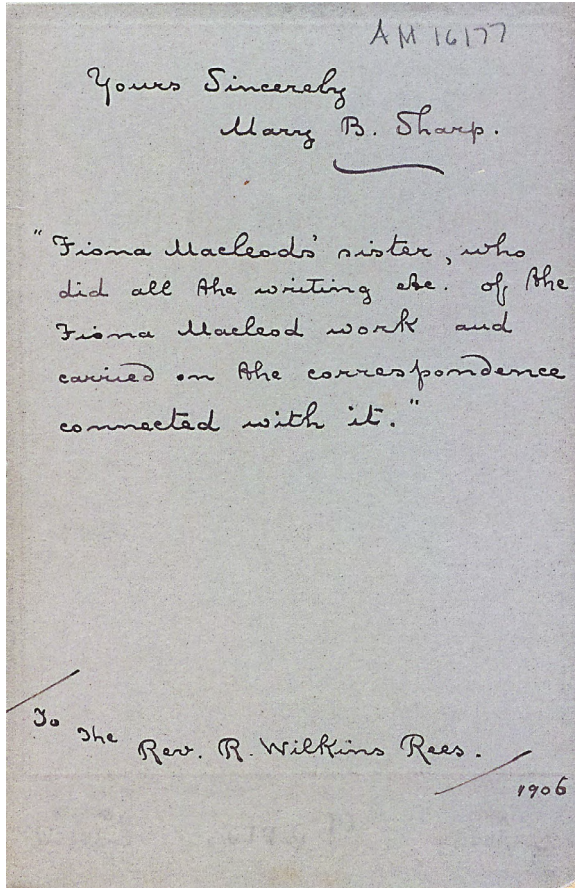 AM 16177
Yours Sincerely
Mary B. Sharp.
"Fiona Macleods' sister, who
did all the writing etc. of the
Fiona Macleod work and
carried on the correspondence
connected with it."
To The Rev. R. Wilkins Rees.
1906